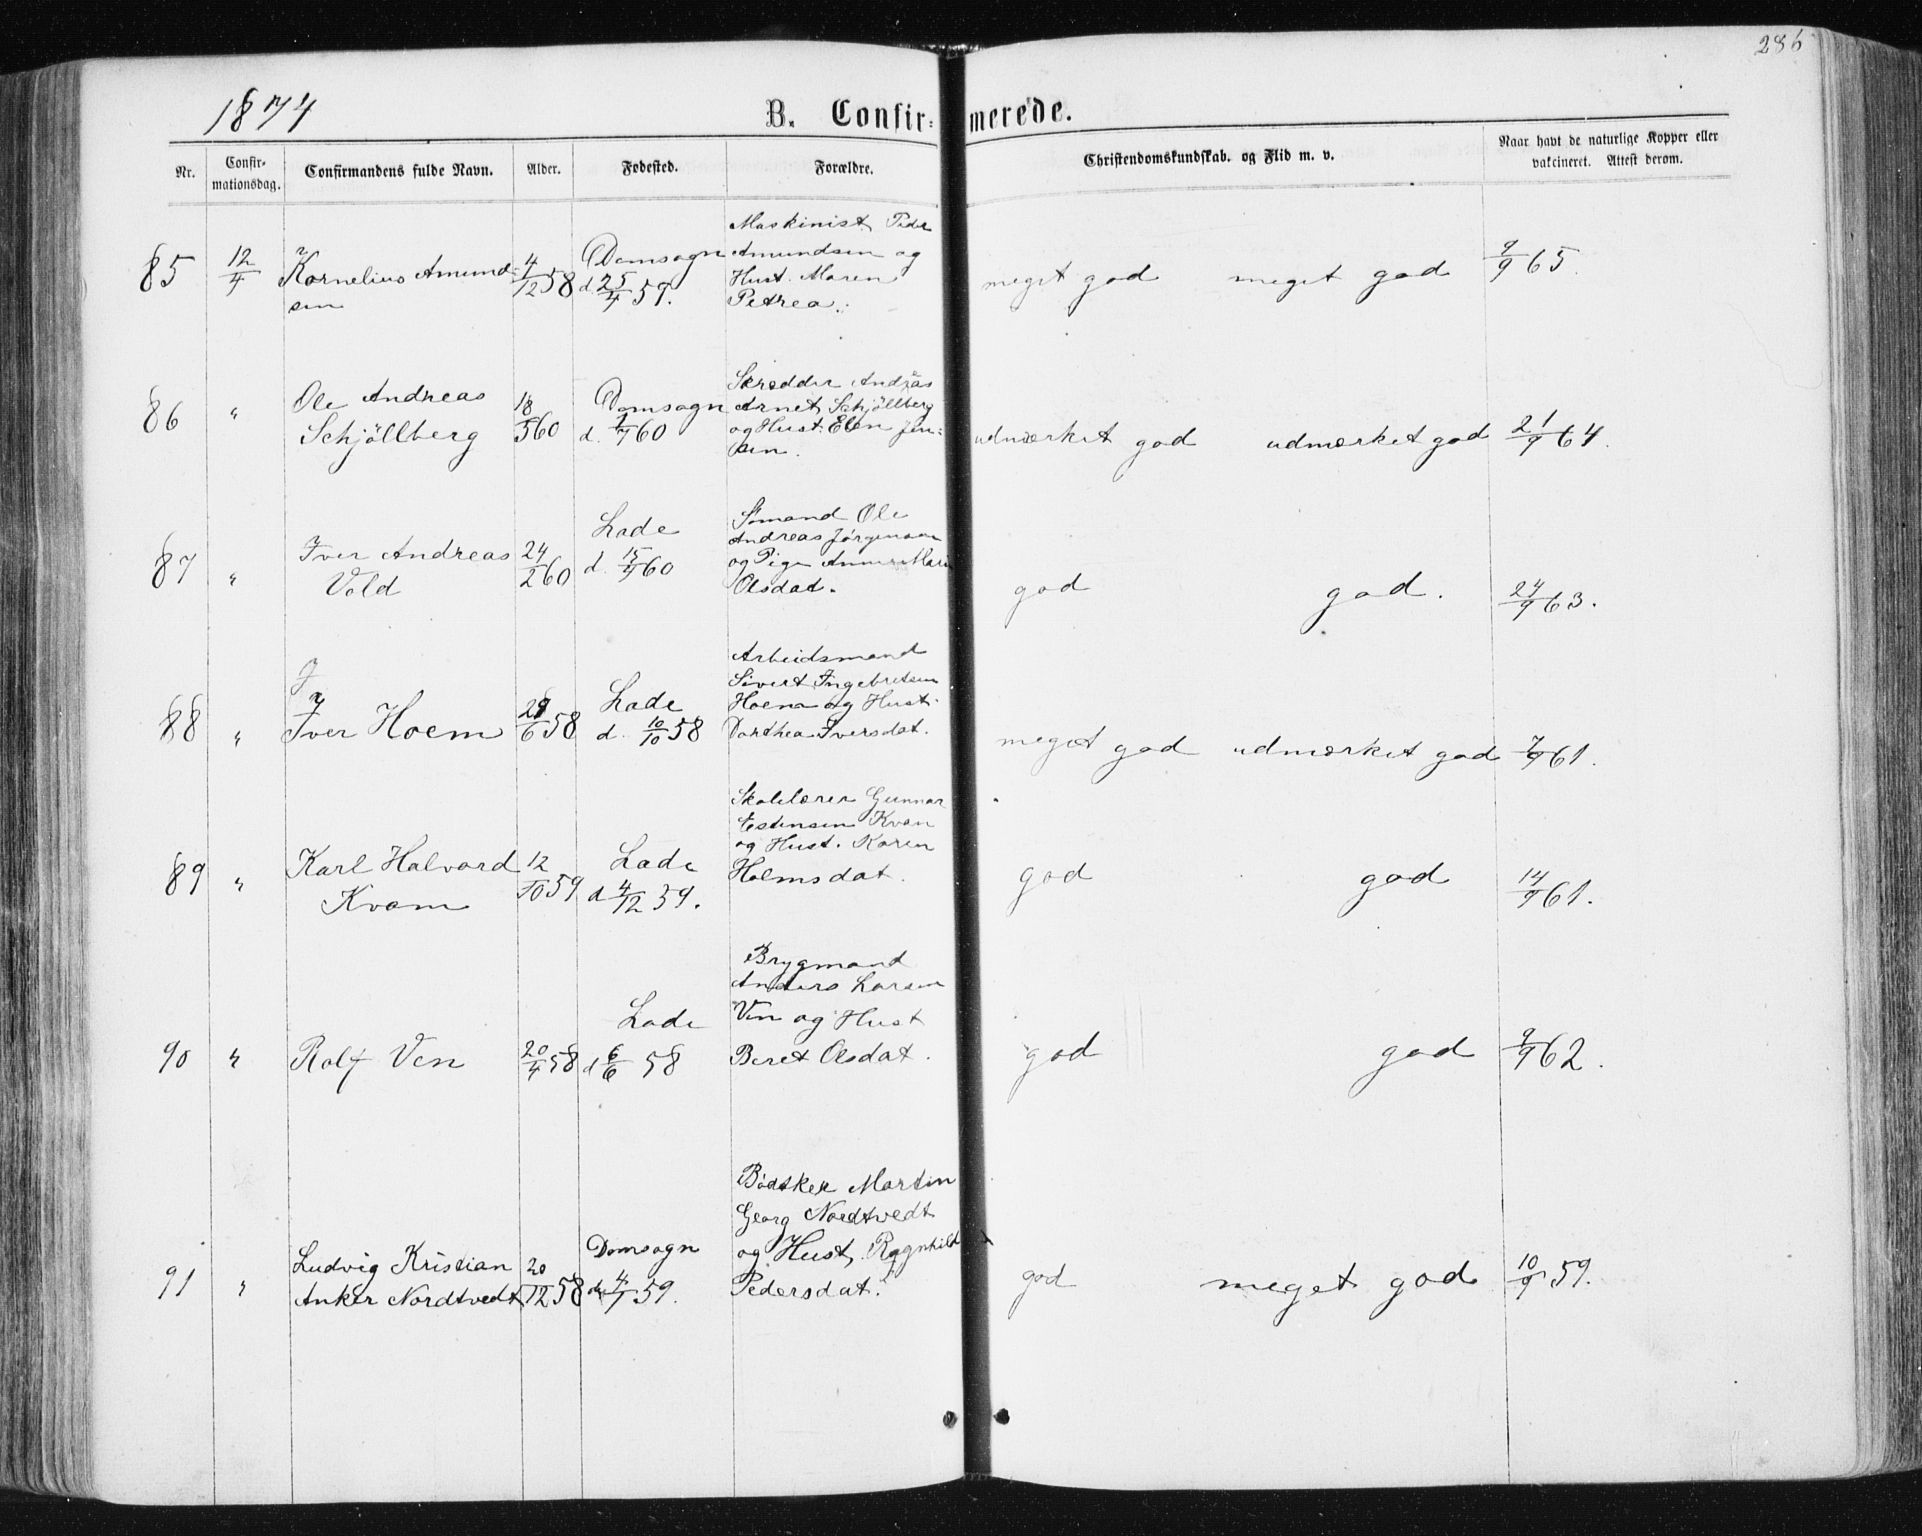 286
1874
B. Confir- merede.
Nr.
Confir-
mationsdag.
Confirmandens fulde Navn.
Alder.
Fødested.
Forældre.
Christendomskundskab. og Flid m. v.
Naar havt de naturlige Kopper eller
vakcineret. Attest derom.
85 12/4 Kornelius Amund-
sen
4/12 58
Domsogn
d. 25/4 59.
Maskinist Peder
Amundsen og
Hust. Maren
Petrea.
meget god meget god 9/9 65.
86 " Ole Andreas
Schjöllberg
18/5 60
Domsogn
d. 1/7 60
Skredder Andreas
Arnet Schjöllberg
og Hust: Elen Jen-
sen.
udmærket god udmærket god 21/9 64.
87 " Iver Andreas
Vold
24/2 60
Lade
d. 15/4 60
Sömand Ole
Andreas Jørgensen
og Pige Anne Marie
Olsdat.
god god. 24/9 63.
88 " Iver Hoem
6 58
Lade
d. 10/10 58
Arbeidsmand
Sivert Ingebretsen
Hoem og Hust.
Dorthea Iversdat.
meget god udmærket god 7/9 61.
89 " Karl Halvard
Kvam
12/10 59
Lade
d 4/12 59.
Skolelærer Gunnar
Estensen Kvam
og Hust. Karen
Holmsdat.
god god 14/9 61.
90 " Rolf Ven
20/4 58
Lade
d 6/6 58
Brygmand
Anders Larsen
Ven og Hust
Beret Olsdat.
god god 9/9 62.
91 " Ludvig Kristian
Anker Nordtvedt
20/12 58
Domsogn
d. 4/7 59.
Bödtker Martin
Georg Nordtvedt
og Hust, Ragnhild
Pedersdat.
god meget god 10/9 59.